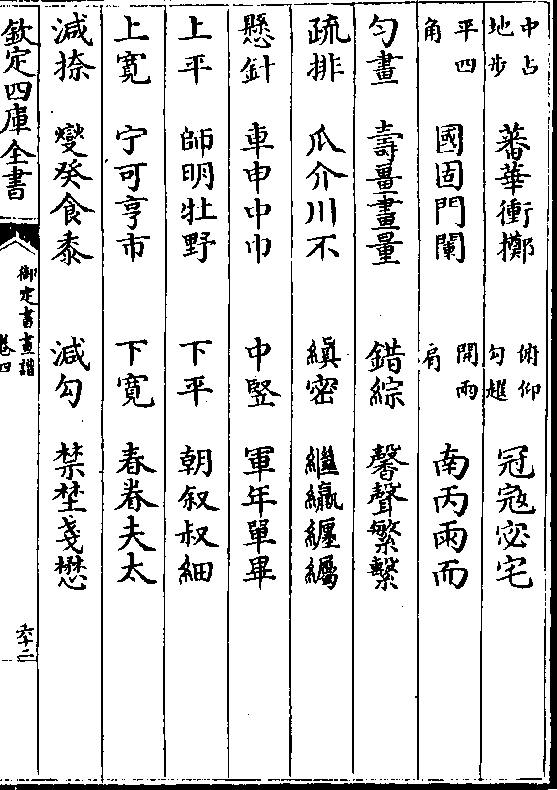 中占地步　蕃華衝擲　俯仰勾趯　冠寇宓宅
平四角　國固門闌　開兩肩　南丙雨而
勻畫　壽畺畫量　錯綜　馨聲繁繫
疏排　爪介川不　縝密　繼纏
懸針　車申中巾　中竪　軍年單畢
上平　師明牡野　下平　朝叙叔細
上寛　宁可亨市　下寛　春卷夫太
減捺　燮癸食黍　減勾　禁埜戔懋
欽定四庫全書　御定書畫譜　卷四　六十二